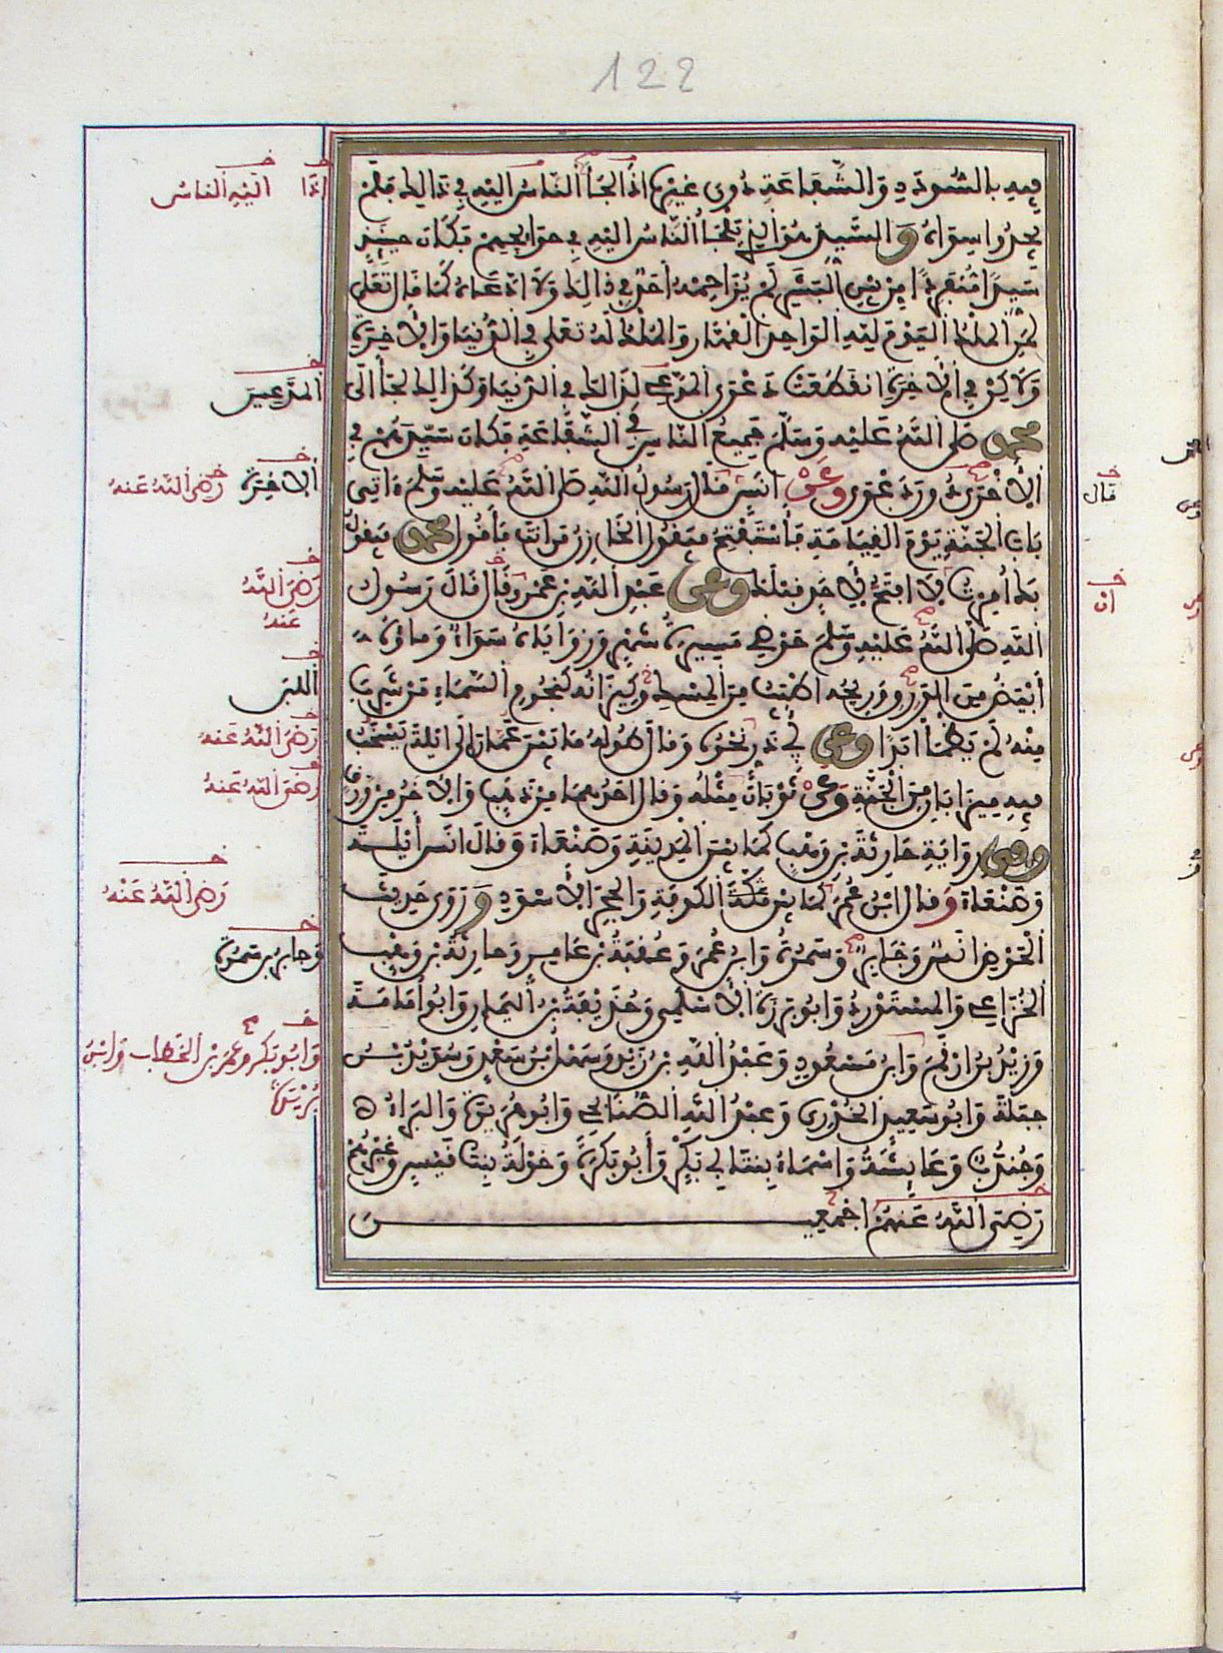 122
فيه بالسودد والشفاعة دون غيره اذ الجأ الناس اليه في ذالك فلم
يجدوا سواه والسيد هو الذي تلجأ الناس اليه في حوايجهم فكان حينئذ
سيدا منفردا من بين البشر لم يزاحمه احد في ذالك ولا ادعاه كما قال تعلى
لمن الملك اليوم لله الواحد القهار والملك له تعلى في الدنيا والاخرة
ولاكن في الاخرة انقطعت دعوى المدعي لذالك في الدنيا وكذالك لجأ الى
محمد صلى الله عليه وسلم جميع الناس في الشفاعة فكان سيدهم في
الاخرى دون دعوى وعن انس قال رسول الله صلى الله عليه وسلم ءاتي
باب الجنة يوم القيامة فأستفتح فيقول الخازن من انت فأقول محمد فيقول
بك أمرت لا افتح لأحد قبلك وعن عبد الله بن عمرو قال قال رسول
الله صلى الله عليه وسلم حوضي مسيرة شهر وزواياه سواء وماؤه
أبيض من الورق وريحه اطيب من المسك وكيزانه كنجوم السماء من شرب
منه لم يظمأ ابدا وعن أبي ذر نحوه وقال طوله ما بين عمان الى ايلة يشخب
فيه ميزابان من الجنة وعن ثوبان مثله وقال احدهما من ذهب والاخر من ورق
وفي رواية حارثة بن وهب كما بين المدينة وصنعاء وقال انس أيلة
وصنعاء وقال ابن عمر كما بين الكوفة والحجر الاسود وروى حديث
الحوض انس وجابر وسمرة وابن عمر وعقبة بن عامر وحارثة بن وهب
الخزاعي والمستورد وابو برزة الأسلمي وحذيفة بن اليمان وابو أمامة
وزيد بن ارقم وابن مسعود وعبد الله بن زيد وسهل بن سعد وسويد بن
جبلة وابو سعيد الخدري وعبد الله الصنابحي وابو هريرة والبراء
وجندب وعايشة واسماء بنت أبي بكر وأبو بكرة وخولة بنت قيس وغيرهم
رضي الله عنهم اجمعين
اذا
اليه الناس
المدعين
الاخرة
رضي الله عنه
رضي الله عنه
اللبن
رضي الله عنه
رضي الله عنه
رضي الله عنه
وجابر بن سمرة
وابو بكر وعمر بن الخطاب وابن
بريدة
قال
ان